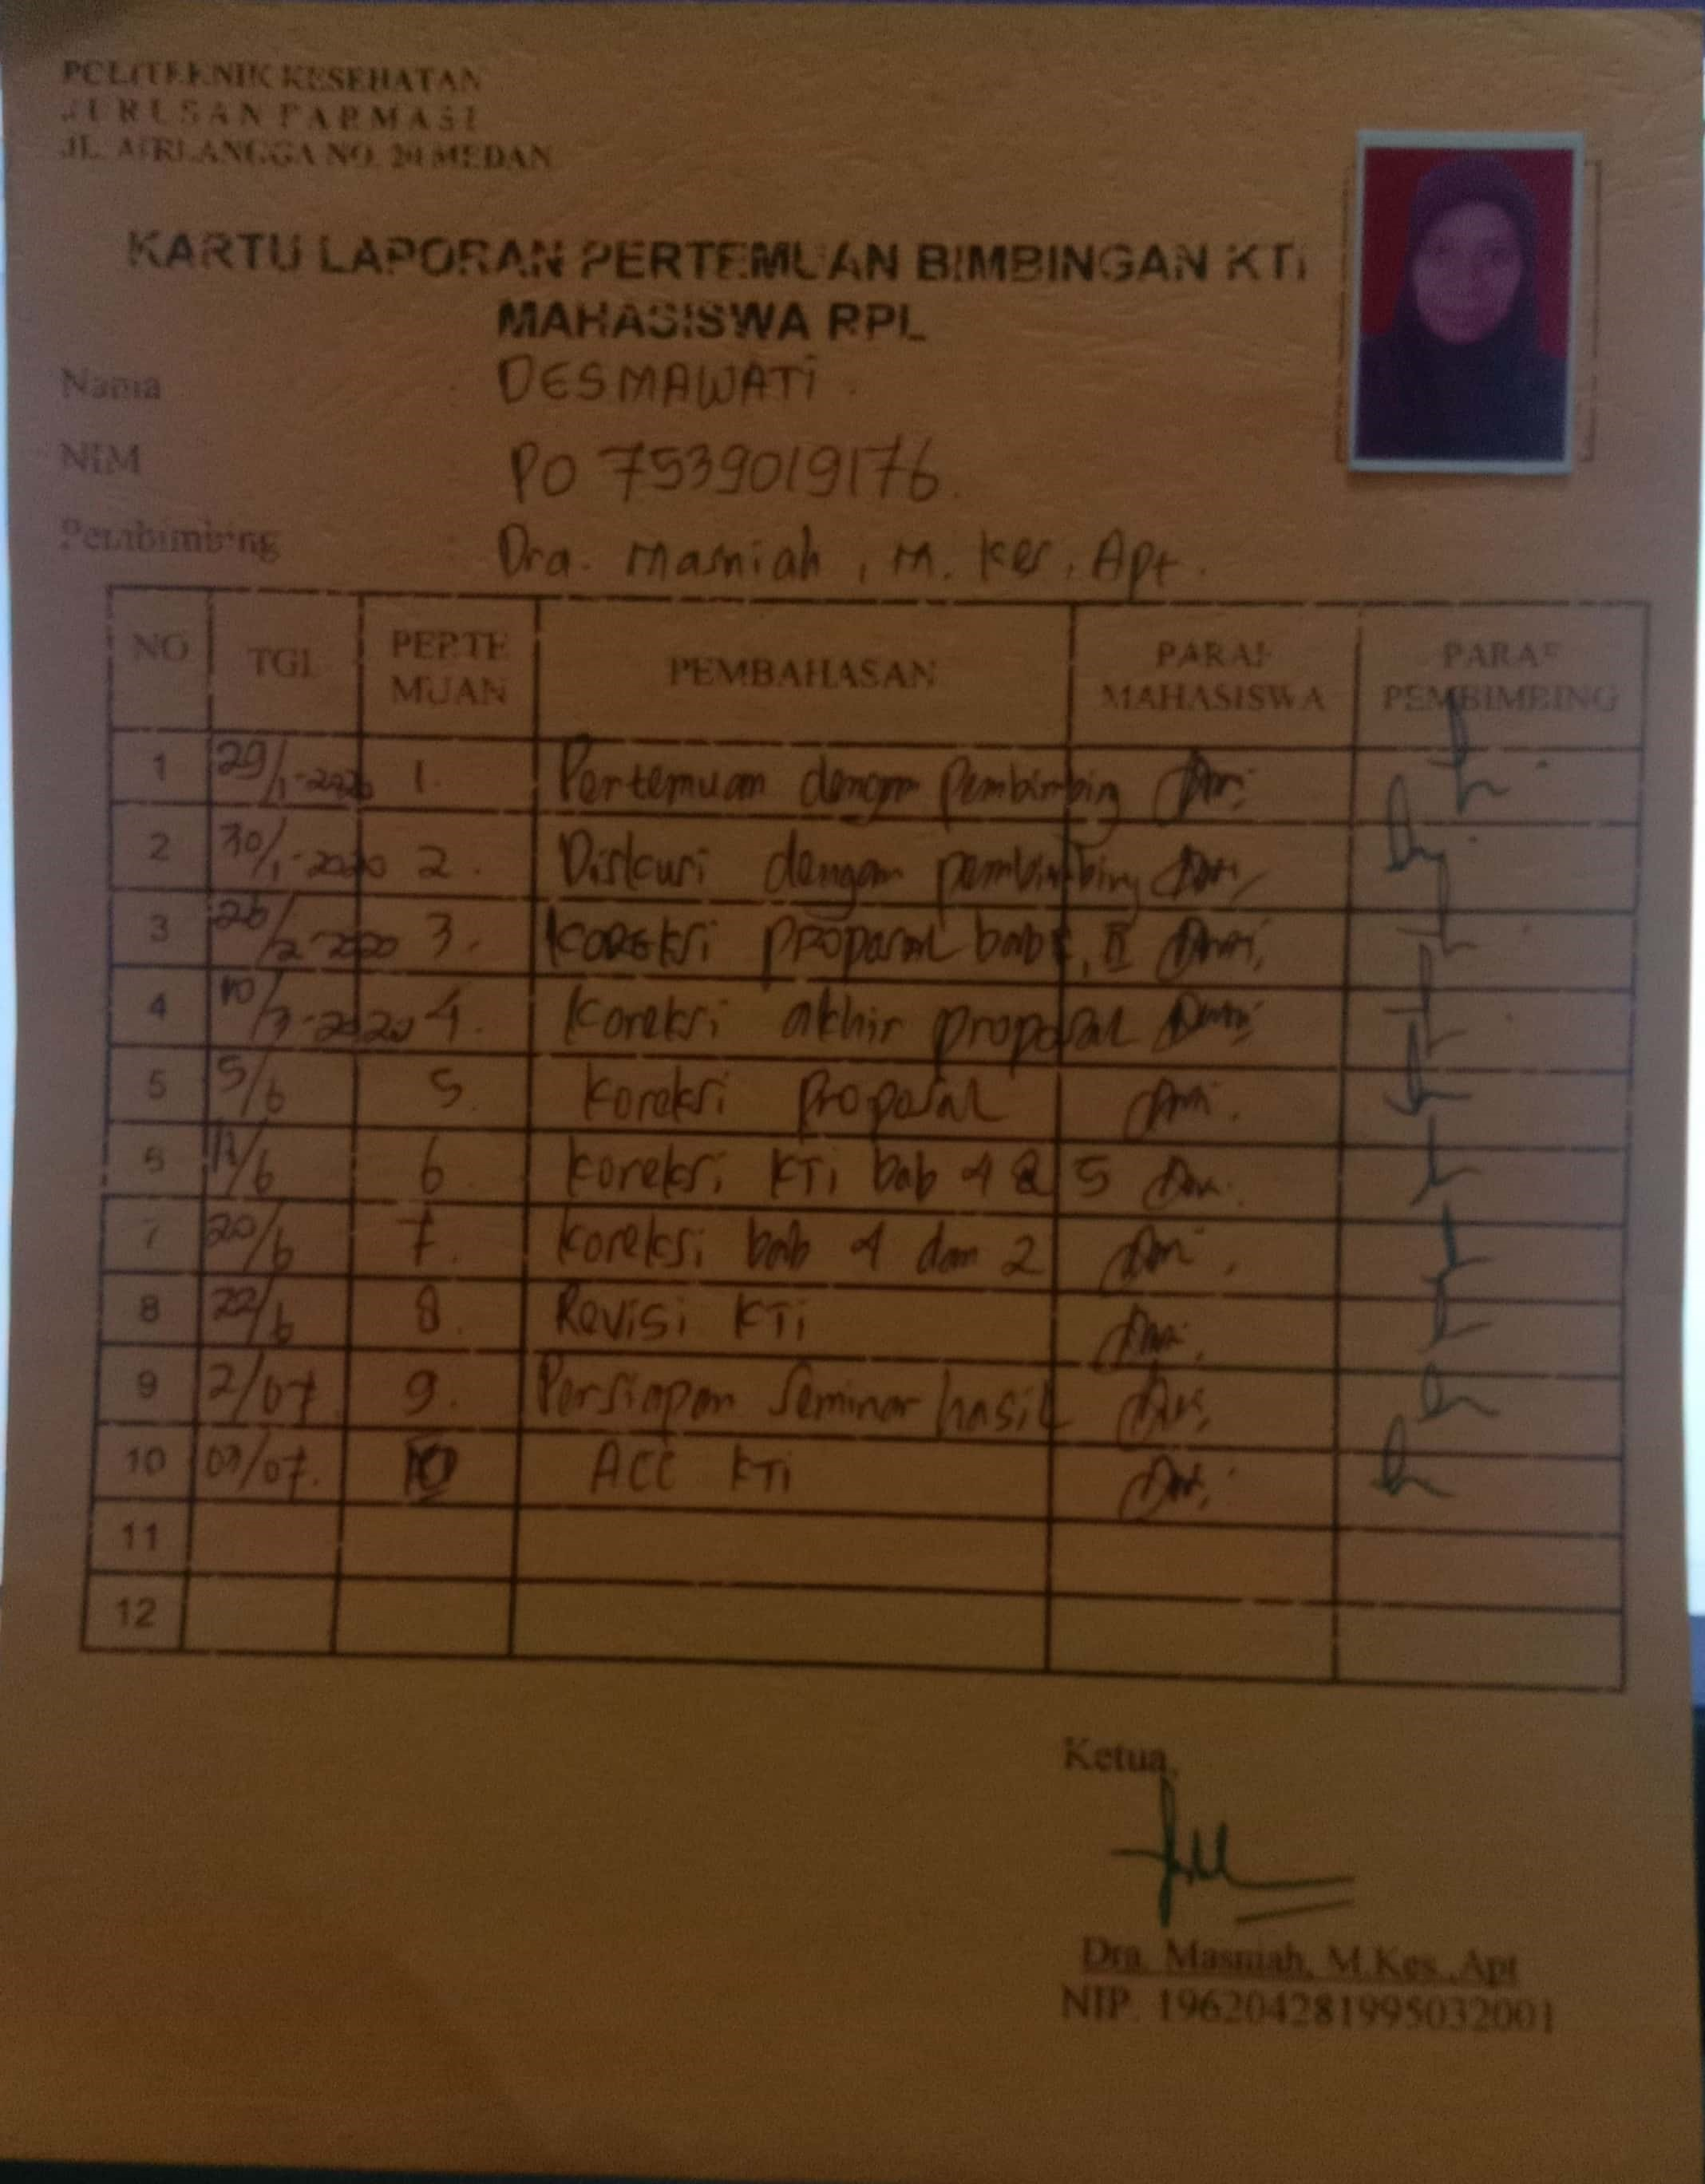 POLITEKNIK KESEHATAN
JURUSAN FARMASI
JL. AIRLANGGA NO. 20 MEDAN
KARTU LAPORAN PERTEMUAN BIMBINGAN KTI
MAHASISWA RPL
Nama : DESMAWATi
NIM : PO 7539019176
Pembimbing : Dra. Masniah, M. Kes, Apt.
NO TGL PERTE MUAN PEMBAHASAN PARAF MAHASISWA PARAF PEMBIMBING
1 29/1-2020 1. Pertemuan dengan Pembimbing
2 30/1-2020 2. Diskusi dengan pembimbing
3 26/2-2020 3. Koreksi proposal bab I, II
4 10/3-2020 4. Koreksi akhir proposal
5 5/6 5. Koreksi Proposal
6 6 Koreksi KTi bab 4 & 5
7 20/6 7. Koreksi bab 4 dan 2
8 22/6 8. Revisi KTi
9 2/07 9. Persiapan Seminar hasil
10 09/07. 10 ACC KTi
11
12
Ketua,
Dra. Masniah, M.Kes.,Apt
NIP. 196204281995032001